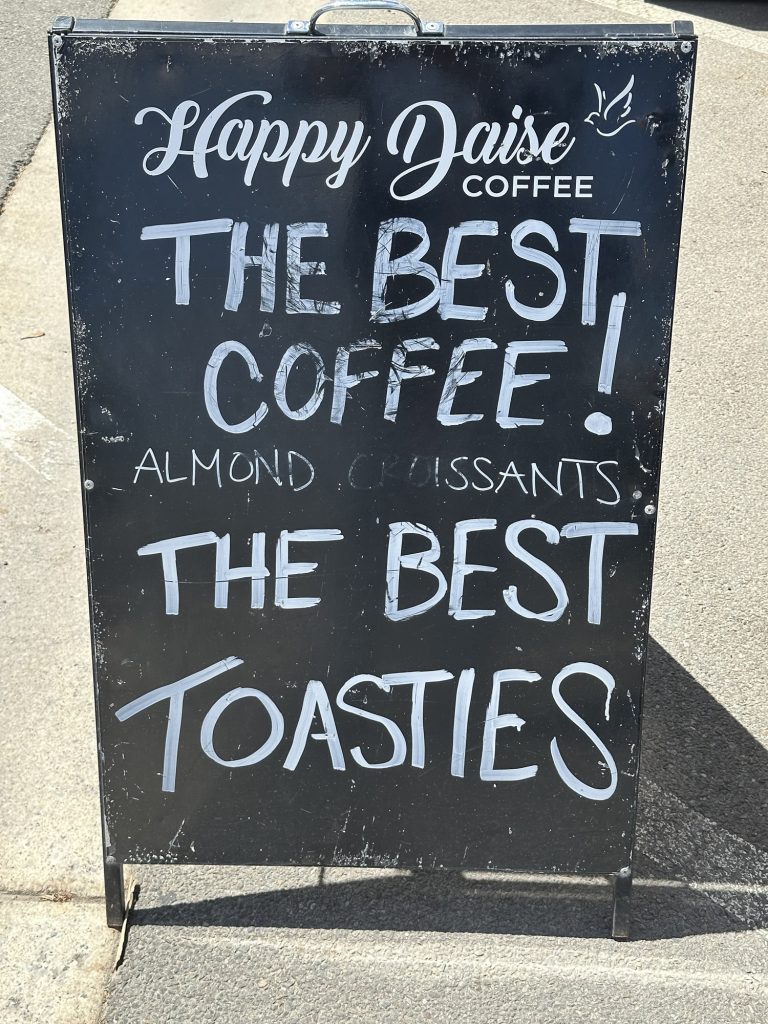 Happy Daise
COFFEE
THE BEST
COFFEE!
ALMOND CROISSANTS
THE BEST
TOASTIES